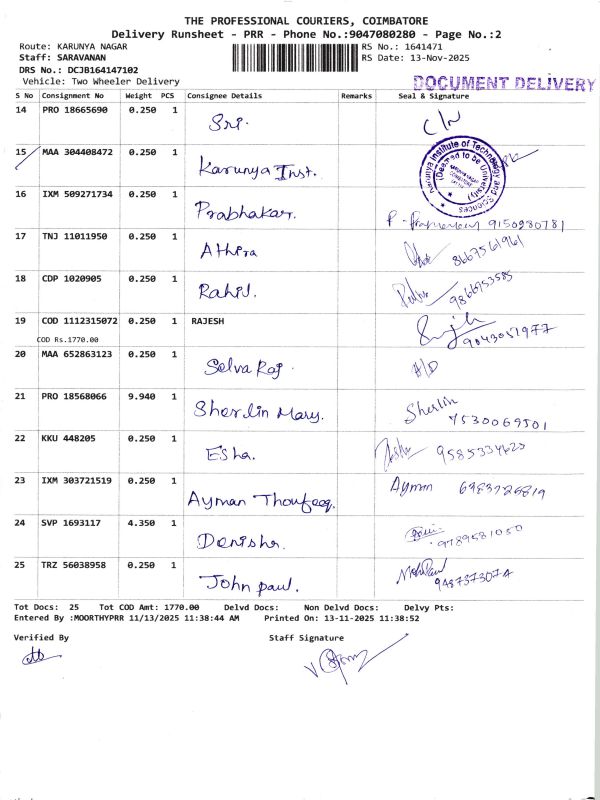 THE PROFESSIONAL COURIERS, COIMBATORE
Delivery Runsheet - PRR - Phone No.:9047080280 - Page No.:2
Route: KARUNYA NAGAR RS No.: 1641471
Staff: SARAVANAN RS Date: 13-Nov-2025
DRS No.: DCJB164147102
Vehicle: Two Wheeler Delivery
DOCUMENT DELIVERY
S No Consignment No Weight PCS Consignee Details Remarks Seal & Signature
14 PRO 18665690 0.250 1 Sri.
15 MAA 304408472 0.250 1 Karunya Inst.
Karunya Institute of Technology and Sciences
(Deemed to be University)
16 IXM 509271734 0.250 1 Prabhakar. 9150980781
17 TNJ 11011950 0.250 1 Athira 8667561961
18 CDP 1020905 0.250 1 Rahil. 9866953585
19 COD 1112315072 0.250 1 RAJESH 9043051977
COD Rs.1770.00
20 MAA 652863123 0.250 1 Selva Raj.
21 PRO 18568066 9.940 1 Sherlin Mary. Sherlin 7530069501
22 KKU 448205 0.250 1 Esha. 9585334625
23 IXM 303721519 0.250 1 Ayman Thoufeeq. Ayman 6983726819
24 SVP 1693117 4.350 1 Denisha. 9789581050
25 TRZ 56038958 0.250 1 John paul. 9487373074
Tot Docs: 25 Tot COD Amt: 1770.00 Delvd Docs: Non Delvd Docs: Delvy Pts:
Entered By :MOORTHYPRR 11/13/2025 11:38:44 AM Printed On: 13-11-2025 11:38:52
Verified By Staff Signature